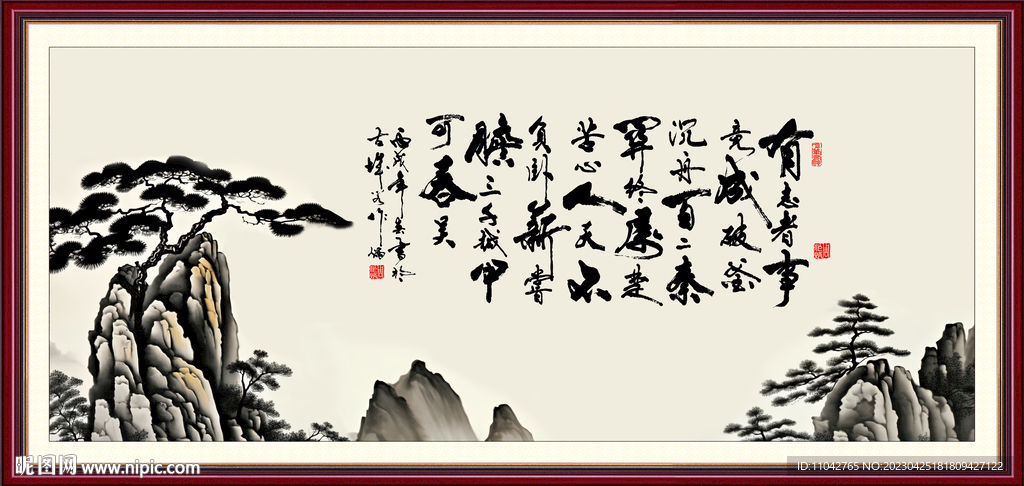 有志者事
竟成破釜
沉舟百二秦
關终属楚
苦心人天不
負卧薪嘗
膽三千越甲
可吞吴
丙戌年春書於
昵图网 www.nipic.com
ID:11042765 NO:20230425181809427122